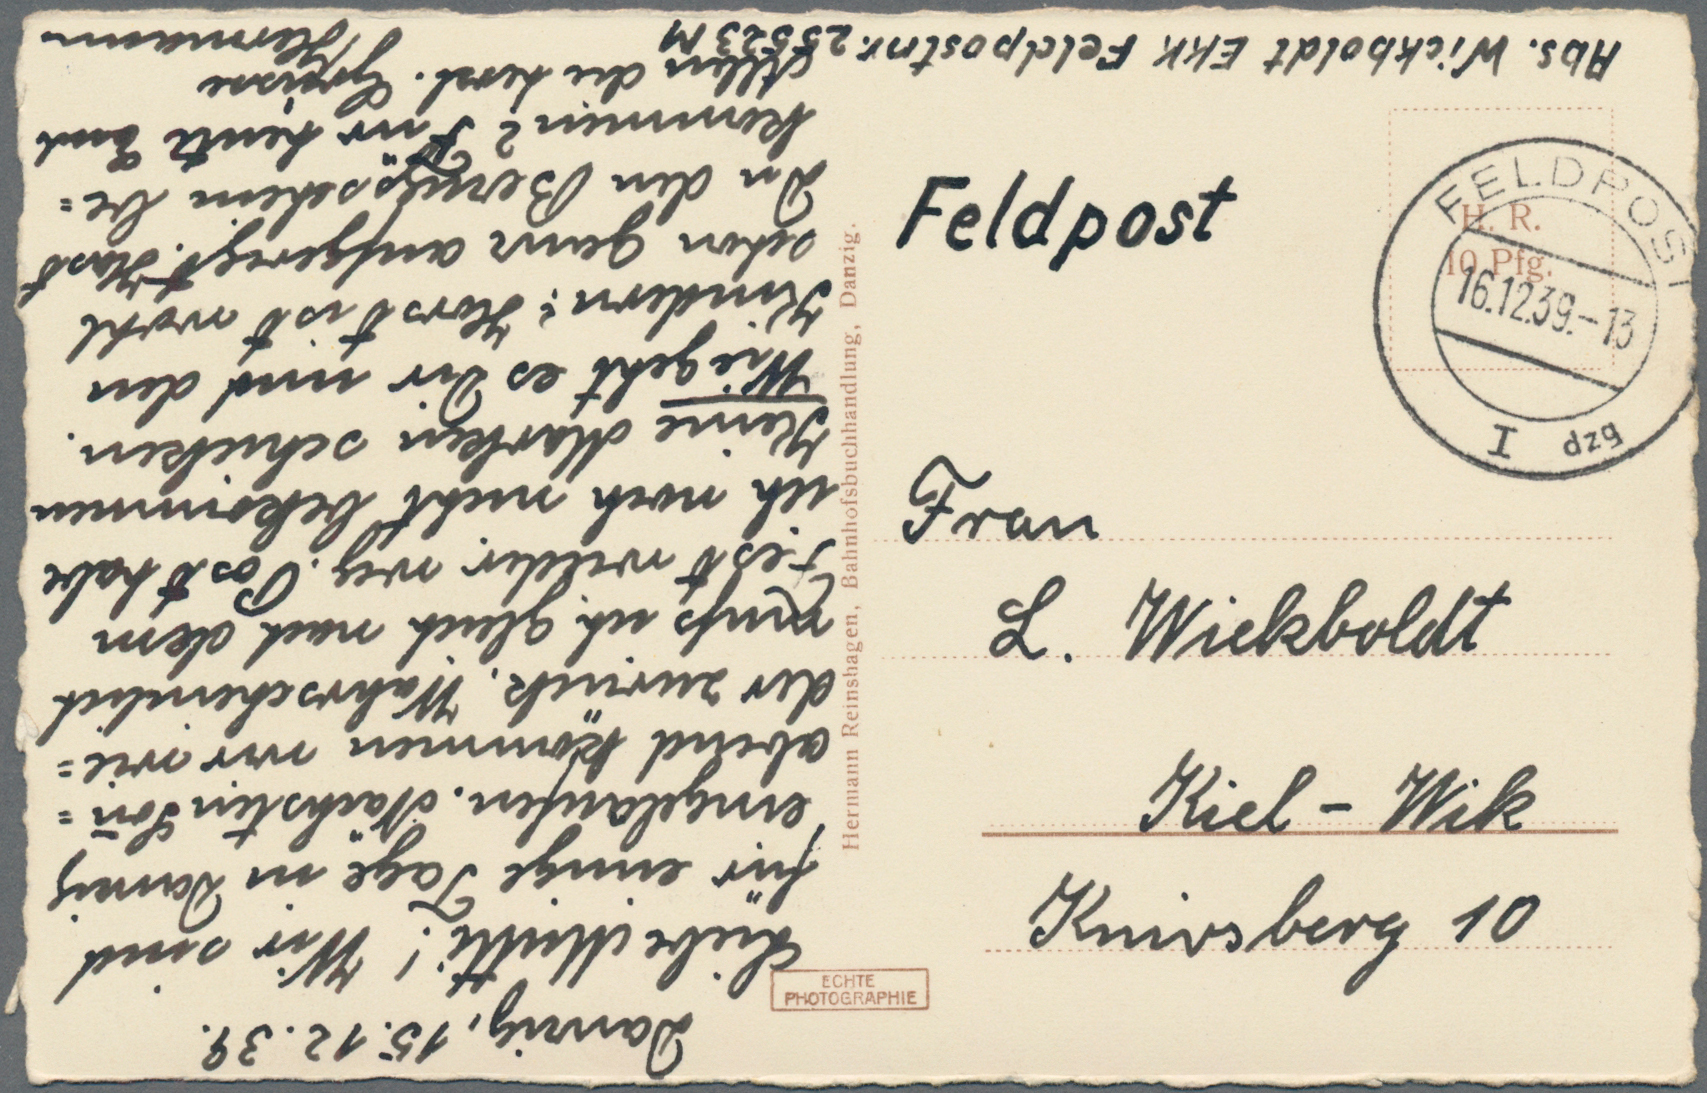 Abs. Wickboldt EKK Feldpostnr. 25523 M
Danzig, 15.12.39.
Liebe Mutti! Wir sind
für einige Tage in Danzig
eingelaufen. Nächsten Son=
abend kommen wir wie=
der zurück. Wahrscheinlich
muß ich gleich nach dem
Fest wieder weg. Post habe
ich noch nicht bekommen
Keine Marken schicken.
Wie geht es Dir und den
Kindern? Horst ist wohl
schon ganz aufgeregt. Hast
Du den Bezugsschein be=
kommen? Für heute Euch
Allen die herzl. Grüsse
Hermann
Hermann Reinshagen, Bahnhofsbuchhandlung, Danzig.
ECHTE
PHOTOGRAPHIE
Feldpost
H. R.
10 Pfg.
FELDPOST
16.12.39.-13
I dzg
Frau
L. Wickboldt
Kiel - Wik
Knivsberg 10